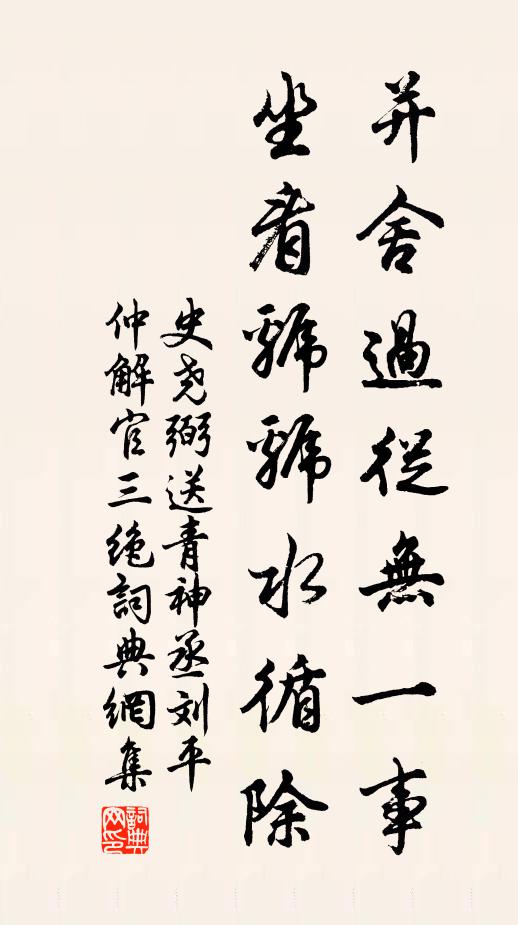 并舍過從無一事
坐看虢虢水循除
史尧弼送青神丞刘平
仲解官三绝詞典網集
詞典网印